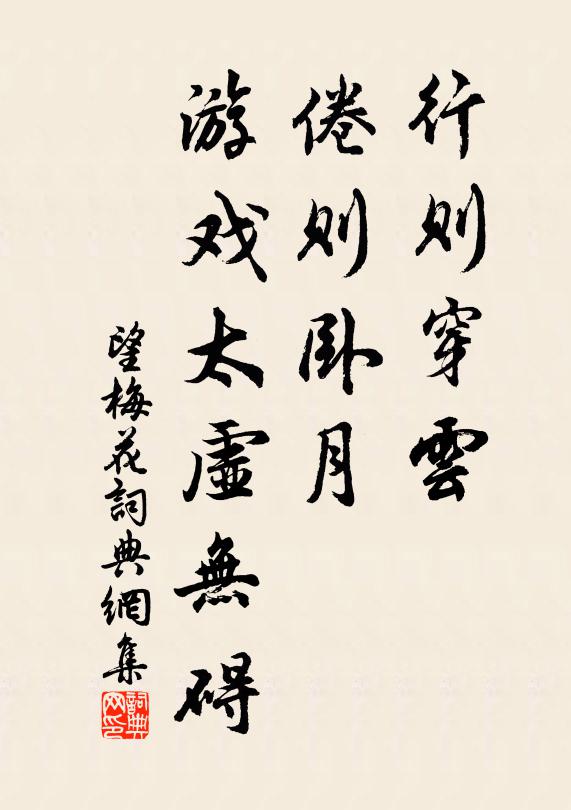 行则穿雲
倦则卧月
游戏太虛無碍
望梅花詞典網集
詞典网印